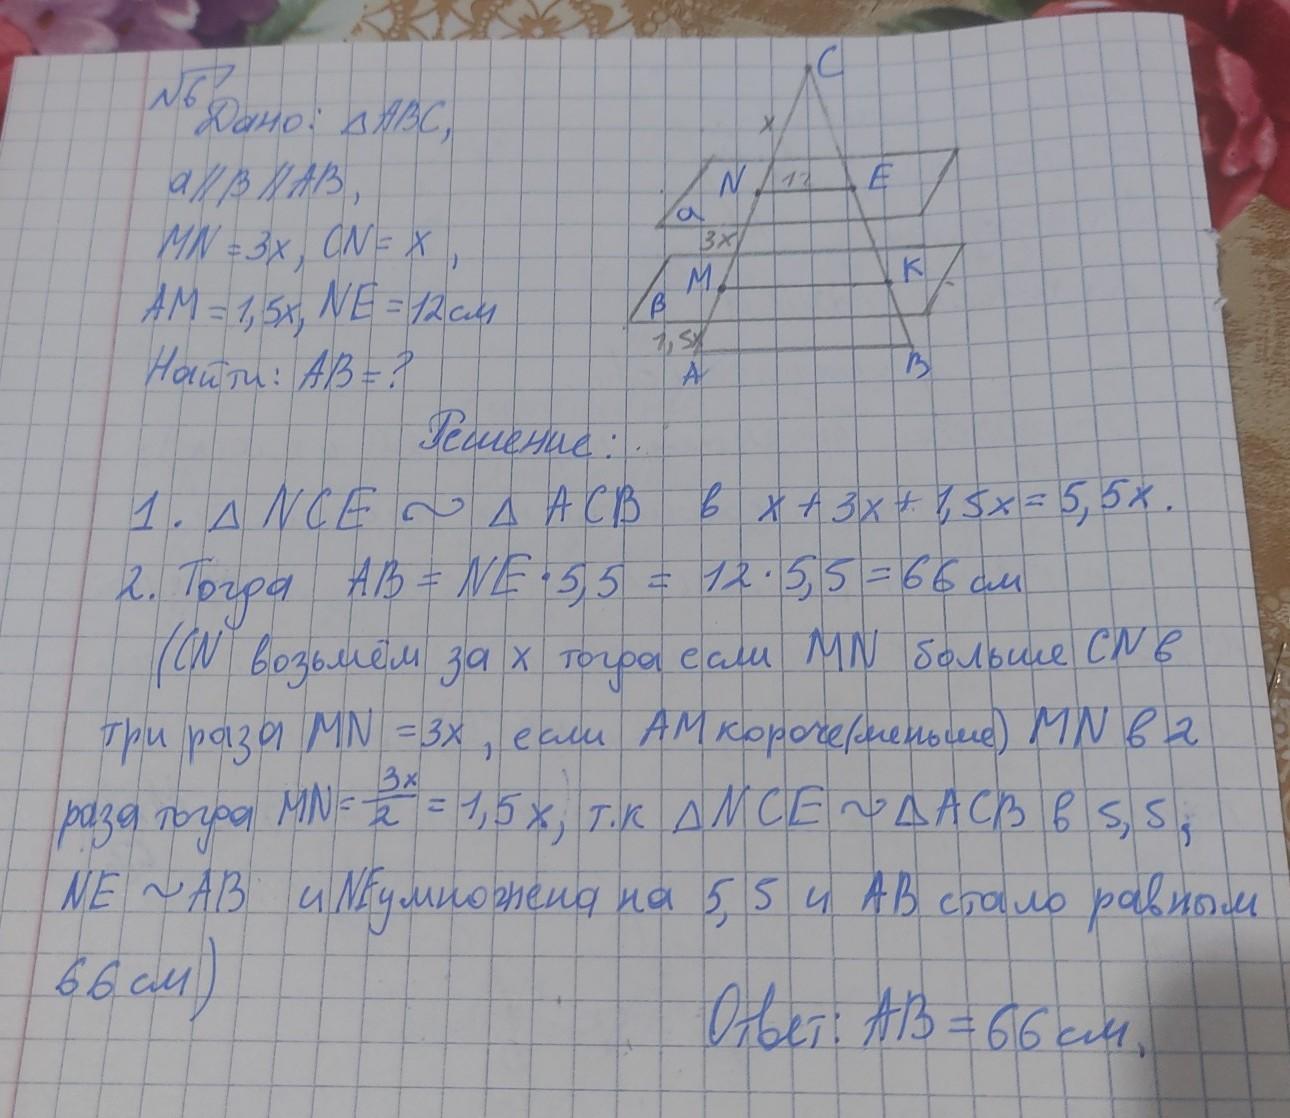 №6
Дано: △ABC,
a//B//AB,
MN = 3x, CN = x,
AM = 1,5x, NE = 12 см
Найти: AB = ?
C
x
N 12 E
a
3x
M K
B
1,5x
A B
Решение:
1. △ NCE ~ △ ACB в x + 3x + 1,5x = 5,5x.
2. Тогда AB = NE · 5,5 = 12 · 5,5 = 66 см
(CN возьмём за x тогда если MN больше CN в
три раза MN = 3x, если AM короче(меньше) MN в 2
раза тогда MN = 3x/2 = 1,5x, т.к △NCE ~ △ACB в 5,5,
NE ~ AB и NE умножена на 5,5 и AB стало равным
66 см)
Ответ: AB = 66 см.